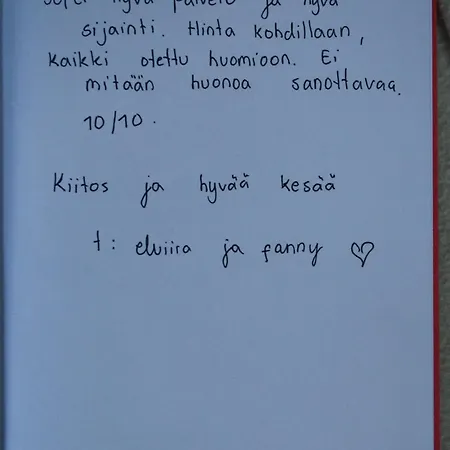 hyvä palvelu ja hyvä
sijainti. Hinta kohdillaan,
kaikki otettu huomioon. Ei
mitään huonoa sanottavaa.
10/10.
Kiitos ja hyvää kesää
t: elviira ja fanny ♡